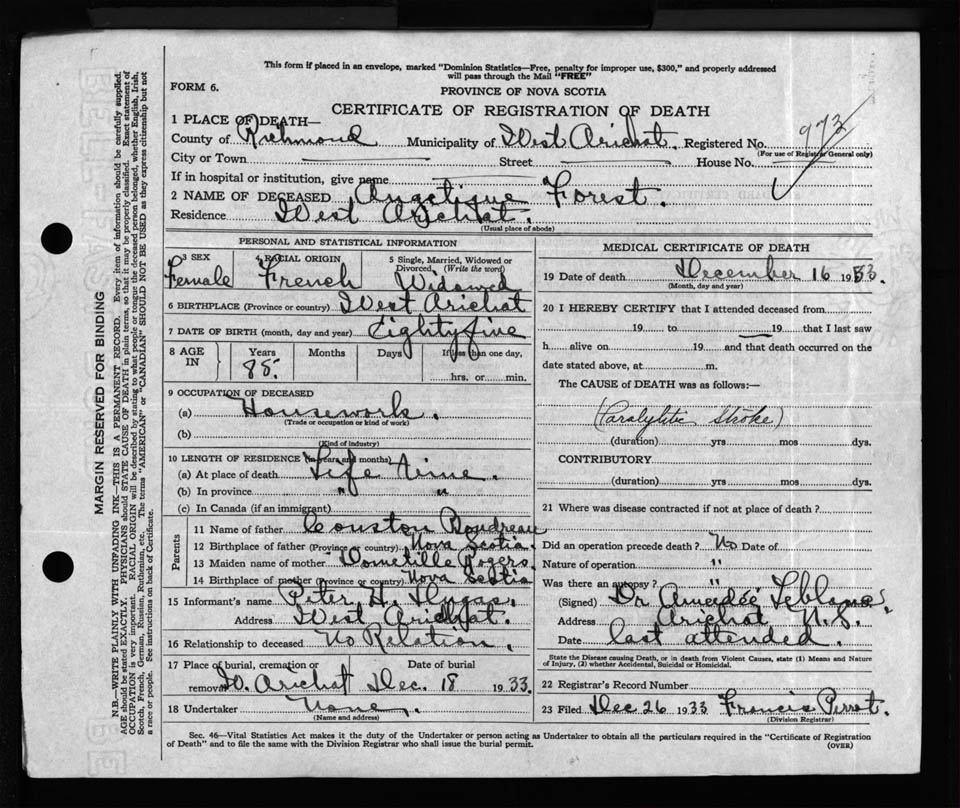 This form if placed in an envelope, marked "Dominion Statistics—Free, penalty for improper use, $300," and properly addressed
will pass through the Mail "FREE"
FORM 6.
PROVINCE OF NOVA SCOTIA
CERTIFICATE OF REGISTRATION OF DEATH
1 PLACE OF DEATH—
County of Richmond Municipality of West Arichat. Registered No. 973
(For use of Registrar General only)
City or Town Street House No.
If in hospital or institution, give name
2 NAME OF DECEASED Angelique Forest.
Residence West Arichat.
(Usual place of abode)
PERSONAL AND STATISTICAL INFORMATION
3 SEX 4 RACIAL ORIGIN 5 Single, Married, Widowed or Divorced, (Write the word)
Female French Widowed
6 BIRTHPLACE (Province or country) West Arichat
7 DATE OF BIRTH (month, day and year) Eighty five
8 AGE IN Years Months Days If less than one day,
85. hrs. or min.
9 OCCUPATION OF DECEASED
(a) Housework.
(Trade or occupation or kind of work)
(b)
(Kind of industry)
10 LENGTH OF RESIDENCE (in years and months)
(a) At place of death Life time.
(b) In province " "
(c) In Canada (if an immigrant)
Parents
11 Name of father Couston Boudreau
12 Birthplace of father (Province or country) Nova Scotia.
13 Maiden name of mother Rogers.
14 Birthplace of mother (Province or country) Nova Scotia
15 Informant's name Peter H.
Address West Arichat.
16 Relationship to deceased No Relation.
17 Place of burial, cremation or removal Date of burial
W. Arichat Dec. 18 1933.
18 Undertaker None.
(Name and address)
MEDICAL CERTIFICATE OF DEATH
19 Date of death December 16 1933.
(Month, day and year)
20 I HEREBY CERTIFY that I attended deceased from
19 to 19 that I last saw
h alive on 19 and that death occurred on the
date stated above, at m.
The CAUSE of DEATH was as follows:—
(Paralytic Stroke)
(duration) yrs mos dys.
CONTRIBUTORY
(duration) yrs mos dys.
21 Where was disease contracted if not at place of death?
Did an operation precede death? No Date of
Nature of operation "
Was there an autopsy? "
(Signed) Dr Amedée Leblanc
Address Arichat N.S.
Date last attended.
State the Disease causing Death, or in death from Violent Causes, state (1) Means and Nature
of Injury, (2) whether Accidental, Suicidal or Homicidal.
22 Registrar's Record Number
23 Filed Dec 26 1933 Francis Perrot.
(Division Registrar)
Sec. 46—Vital Statistics Act makes it the duty of the Undertaker or person acting as Undertaker to obtain all the particulars required in the "Certificate of Registration
of Death" and to file the same with the Division Registrar who shall issue the burial permit.
(OVER)
MARGIN RESERVED FOR BINDING
N.B.—WRITE PLAINLY WITH UNFADING INK—THIS IS A PERMANENT RECORD. Every item of information should be carefully supplied.
AGE should be stated EXACTLY. PHYSICIANS should STATE CAUSE OF DEATH in plain terms, so that it may be properly classified. Exact statement of
OCCUPATION is very important. RACIAL ORIGIN will be described by stating to what people or tongue the deceased person belonged, whether English, Irish,
Scotch, French, German, Russian, Ruthenian, etc. The terms "AMERICAN" or "CANADIAN" SHOULD NOT BE USED as they express citizenship but not
a race or people. See instructions on back of Certificate.